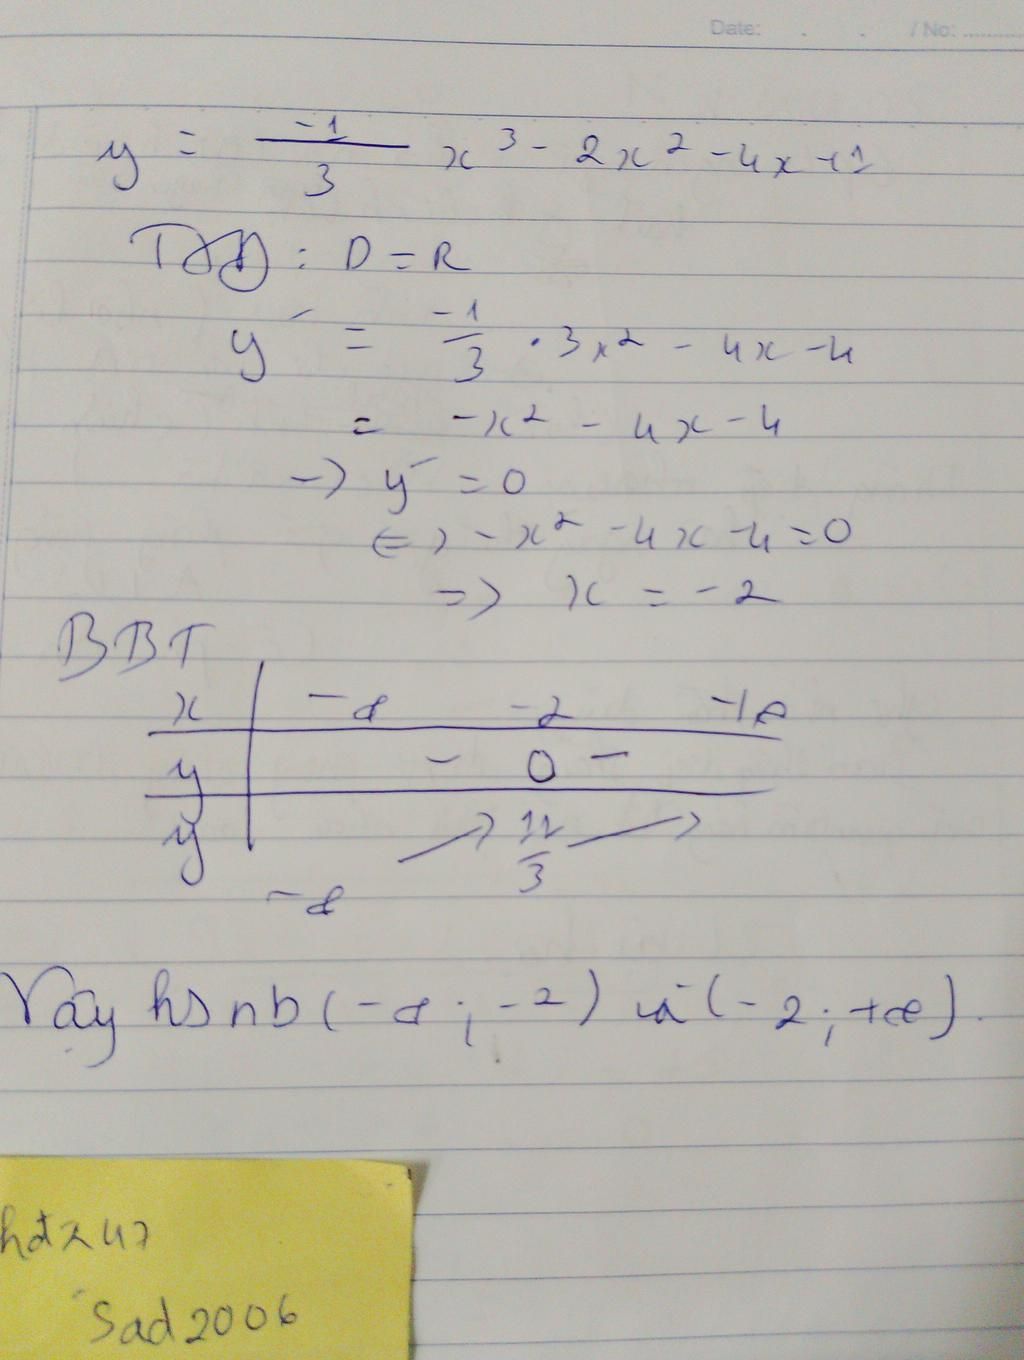 Date: . . / No: ..........
y = -1/3 x³ - 2x² - 4x + 1
TXĐ : D = R
y' = -1/3 . 3x² - 4x - 4
= -x² - 4x - 4
-> y' = 0
<=> -x² - 4x - 4 = 0
=> x = -2
BBT
x -∞ -2 +∞
y - 0 -
y -∞ ↗ 11/3 ↗
Vậy hs nb (-∞ ; -2) và (-2 ; +∞).
Sad2006